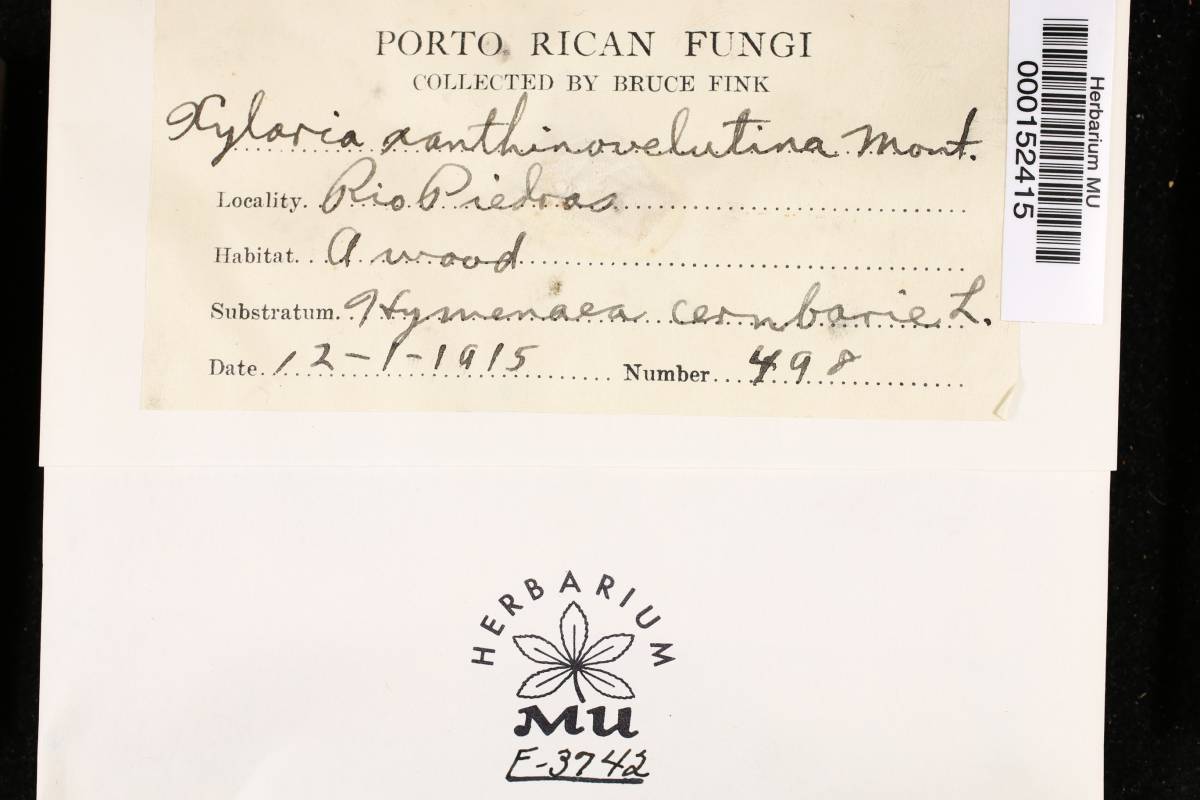 PORTO RICAN FUNGI
COLLECTED BY BRUCE FINK
Xylaria xanthinovelutina Mont.
Locality. Rio Piedras
Habitat. A wood
Substratum. Hymenaea cernbarie L.
Date. 12-1-1915 Number. 498
Herbarium MU
000152415
HERBARIUM
MU
F-3742